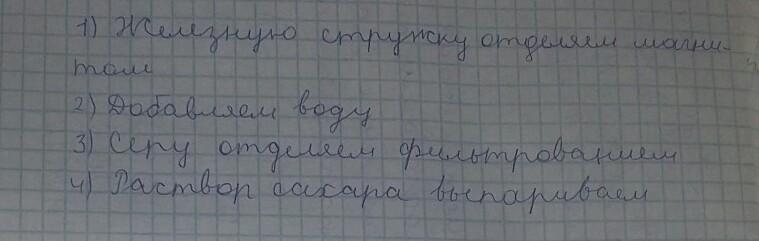 1) Железную стружку отделяем магни-
том
2) Добавляем воду
3) Серу отделяем фильтрованием
4) Раствор сахара выпариваем